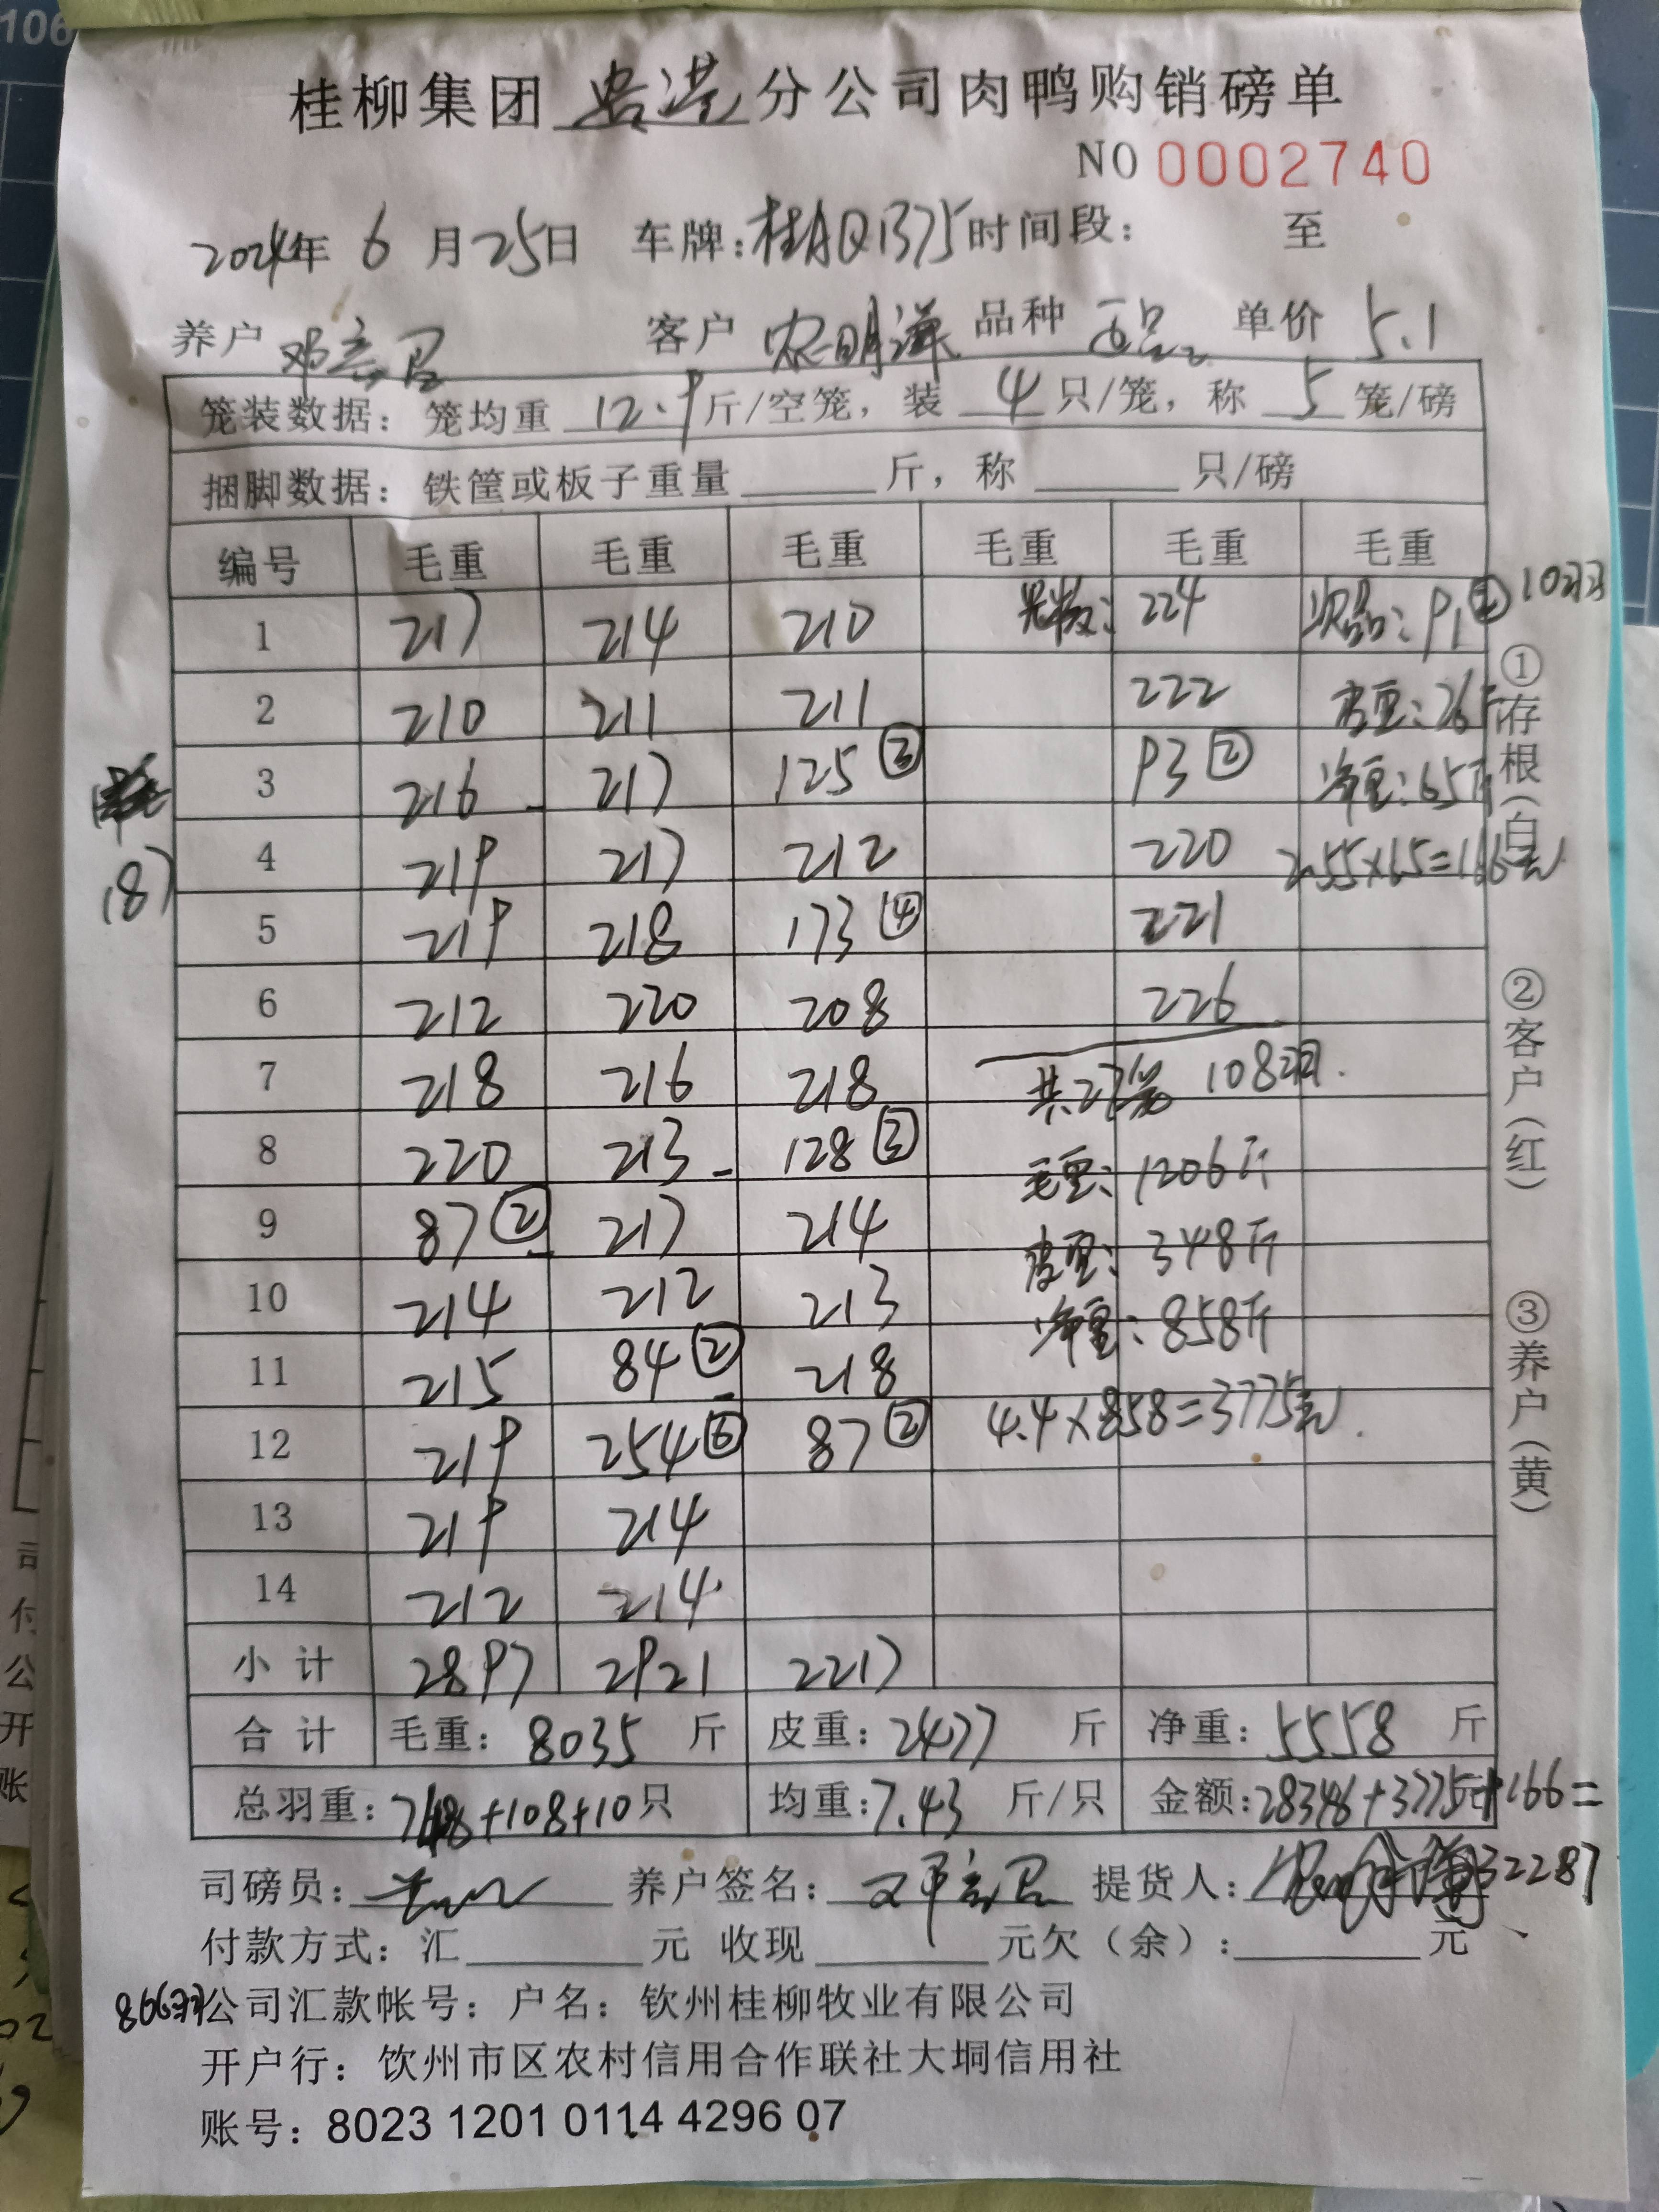 106
桂柳集团 贵港 分公司肉鸭购销磅单
NO 0002740
2024年 6 月 25日 车牌: 桂AQ1375 时间段: 至
养户 客户 农明 品种 单价 5.1
笼装数据: 笼均重 12.9 斤/空笼, 装 4 只/笼, 称 5 笼/磅
捆脚数据: 铁筐或板子重量 斤, 称 只/磅
编号 毛重 毛重 毛重 毛重 毛重 毛重
1 217 214 210 224 次品: 91 ② 10羽
2 210 211 211 222 皮重: 26斤
3 216 217 125 ③ 93 ② 净重: 65斤
4 219 217 212 220 2.55×65=166元
5 219 218 173 ④ 221
6 212 220 208 226
7 218 216 218 共27笼 108羽.
8 220 213 128 ③ 毛重: 1206斤
9 87 ② 217 214 皮重: 348斤
10 214 212 213 净重: 858斤
11 215 84 ② 218 4.4×858=3775元.
12 219 254 ⑥ 87 ②
13 219 214
14 212 214
小计 2897 2921 2217
合计 毛重: 8035 斤 皮重: 2477 斤 净重: 5558 斤
总羽重: 748+108+10 只 均重: 7.43 斤/只 金额: 28346+3775+166=
32287
司磅员: 养户签名: 提货人:
付款方式: 汇 元 收现 元欠（余）: 元
866羽
公司汇款帐号: 户名: 钦州桂柳牧业有限公司
开户行: 钦州市区农村信用合作联社大垌信用社
账号: 8023 1201 0114 4296 07
187
①存根(白)
②客户(红)
③养户(黄)